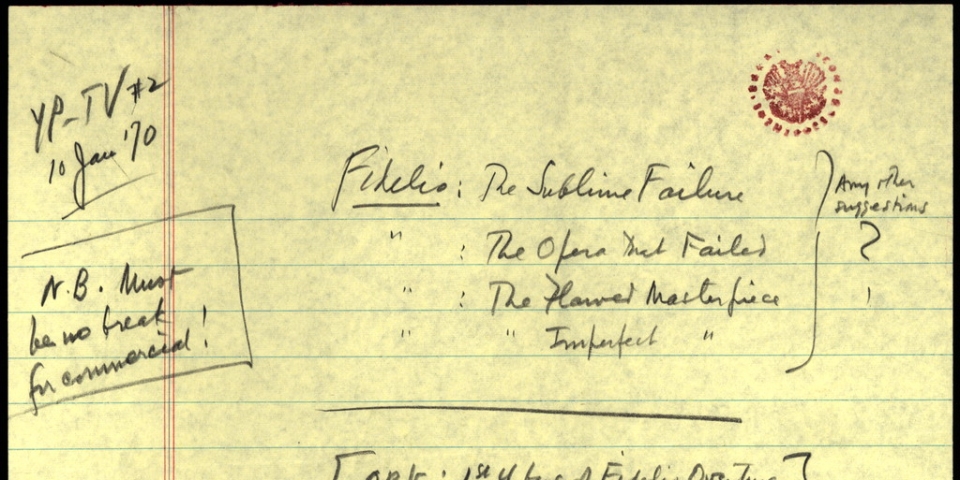 YP-TV #2
10 Jan '70
N.B. Must
be no break
for commercial!
Fidelio: The Sublime Failure
" : The Opera That Failed
" : The Flawed Masterpiece
" " Imperfect "
Any other
suggestions
?
[ORK: 1st 4 bars of Fidelio Overture]